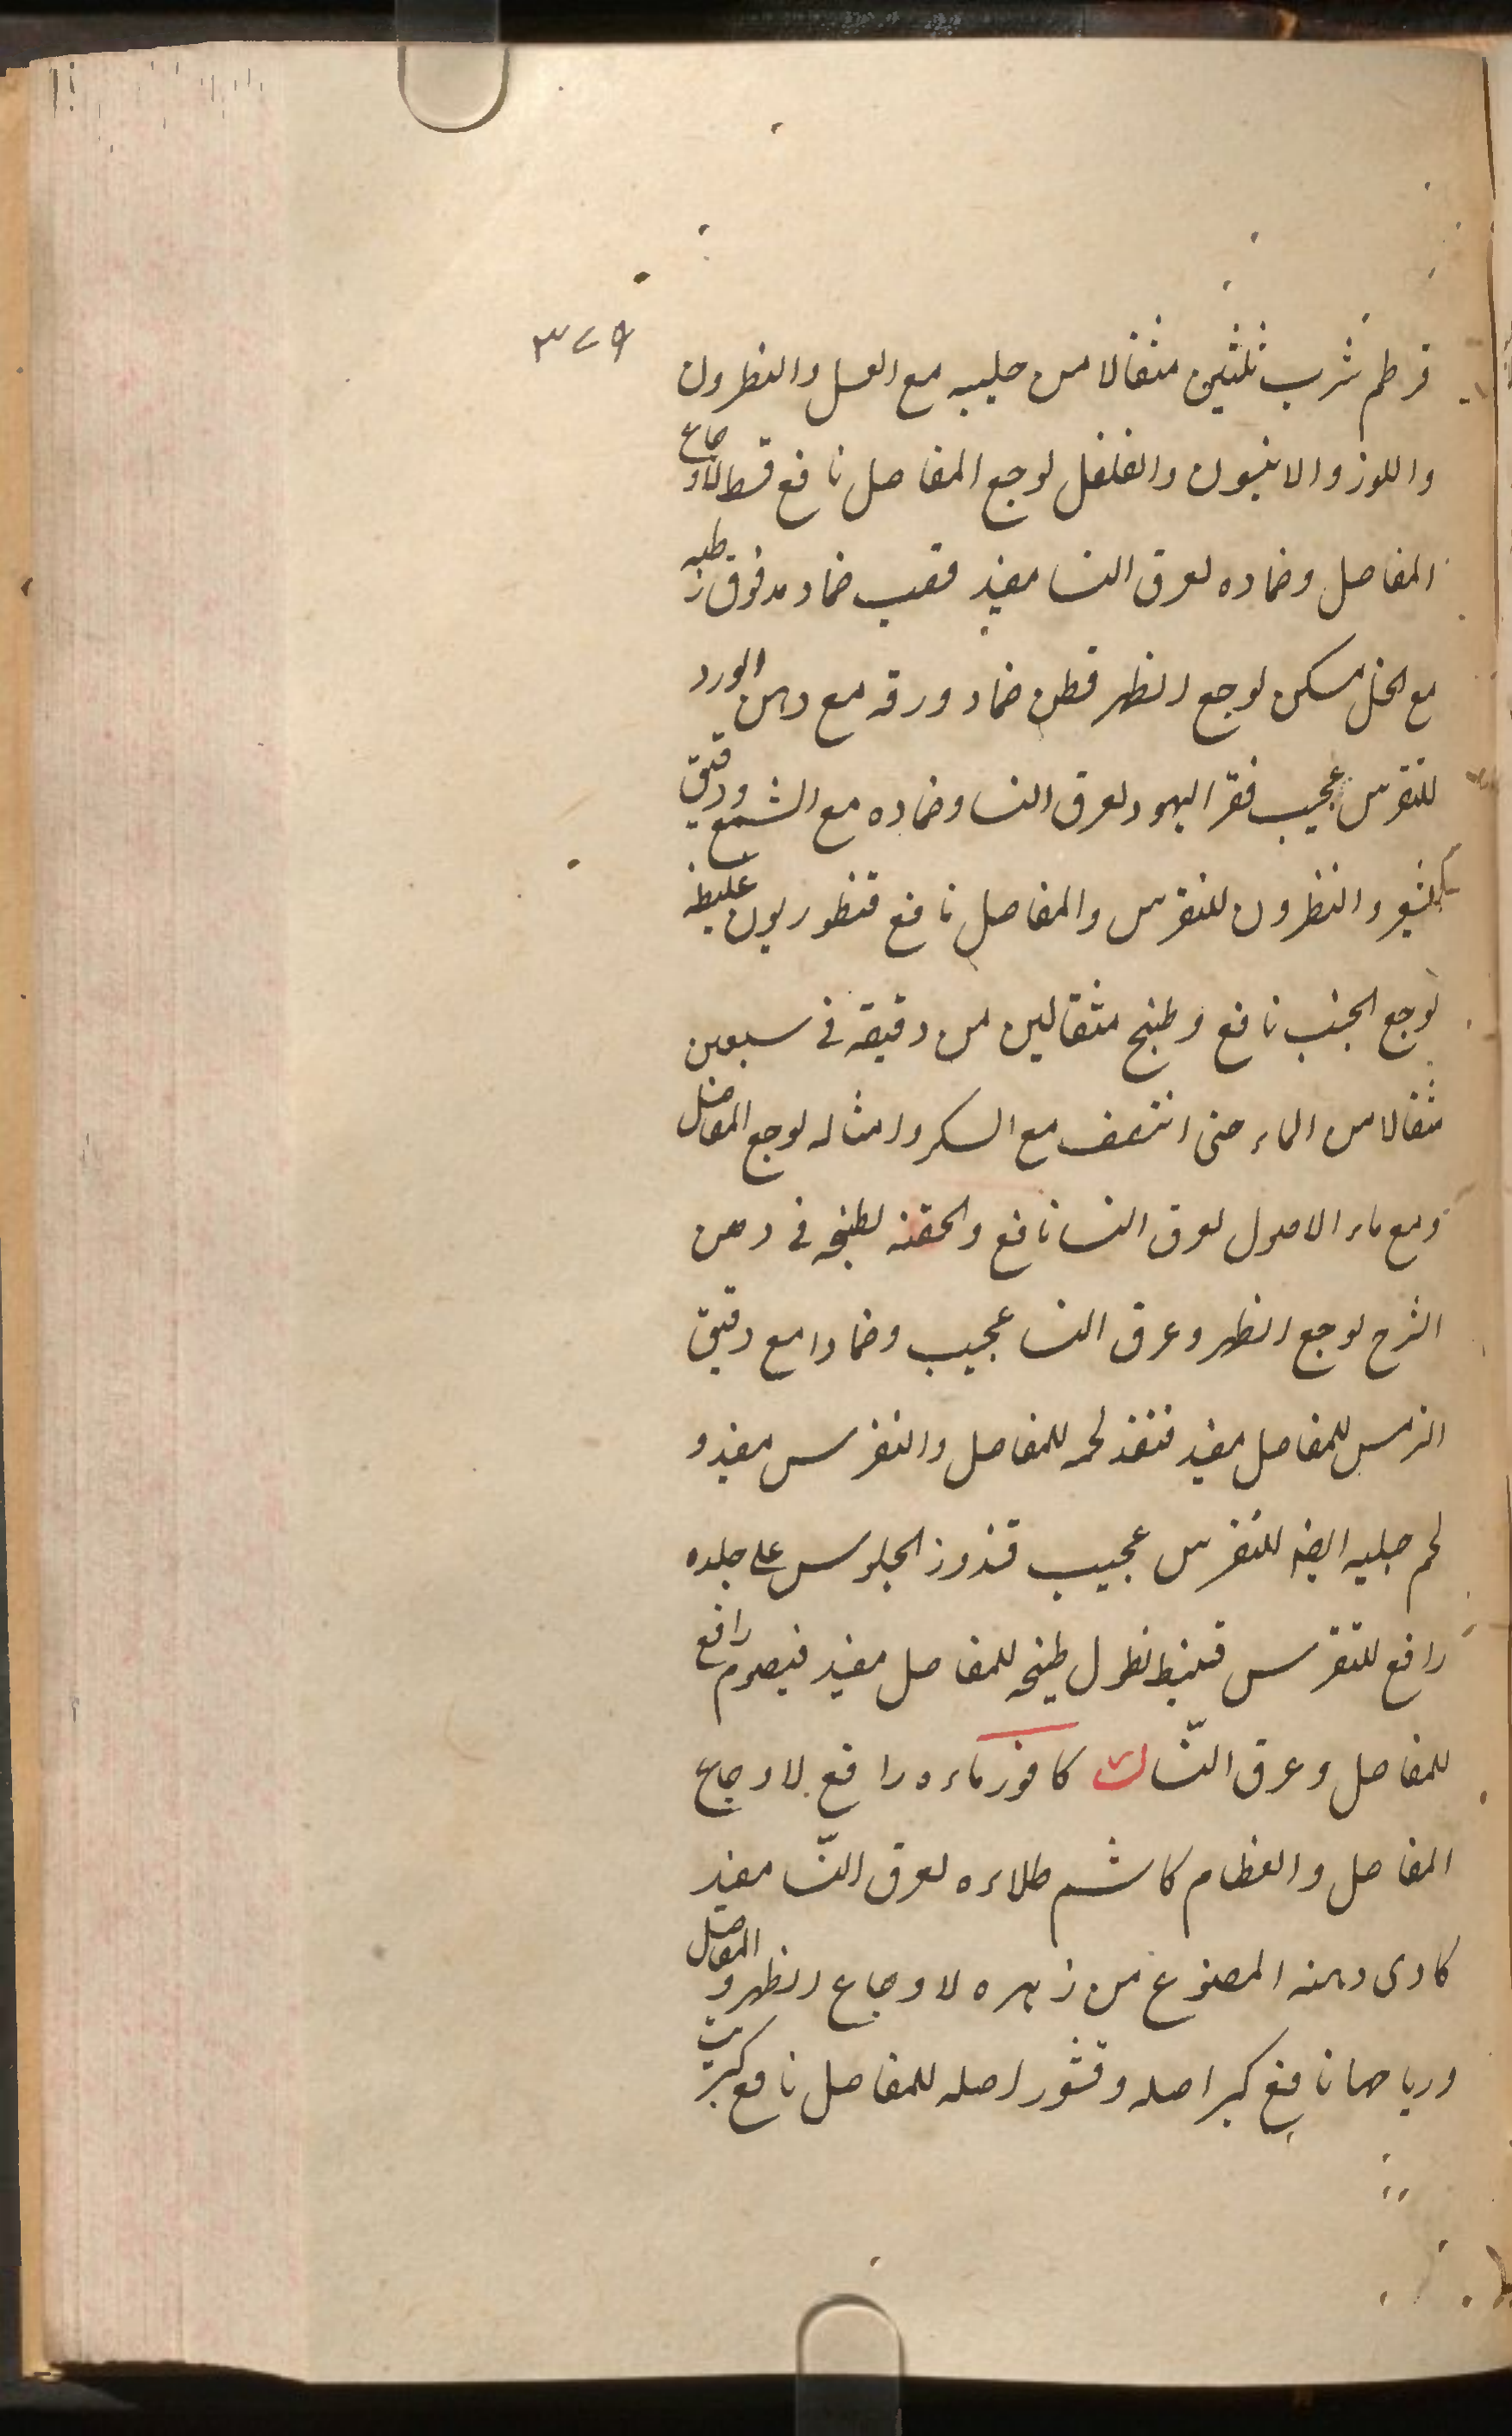 ٣٧٩
قرطم شرب ثلثين مثقالا من حليبه مع العسل والنطرون
واللوز والانيسون والفلفل لوجع المفاصل نافع قسط لاوجاع
المفاصل وضماده لعرق النسا مفيد قصب ضماد مدقوق رطبه
مع الخل مسكن لوجع الظهر قطن ضماد ورقه مع دهن الورد
للنقرس عجيب قفر اليهود لعرق النسا وضماده مع الشمع ودقيق
الشعير والنطرون للنقرس والمفاصل نافع قنطوريون غليظ
لوجع الجنب نافع وطبخ مثقالين من دقيقه في سبعين
مثقالا من الماء حتى انتصف مع السكر وامثاله لوجع المفاصل
ومع ماء الاصول لعرق النسا نافع والحقنه لطبخه في دهن
لوجع الظهر وعرق النسا عجيب وضمادا مع دقيق
الترمس للمفاصل مفيد قنفذ لحمه للمفاصل والنقرس مفيد و
لحم جبليه ايضا للنقرس عجيب قندوز الجلوس على جلده
رافع للنقرس قنبيط نطول طبخه للمفاصل مفيد قيصوم رافع
للمفاصل وعرق النسا ك كافور ماءه رافع لاوجاع
المفاصل والعظام كاشم طلاءه لعرق النسا مفيد
كادى دهنه المصنوع من زهره لاوجاع الظهر والمفاصل
ورياحها نافع كبر اصله وقشور اصله للمفاصل نافع كبريت